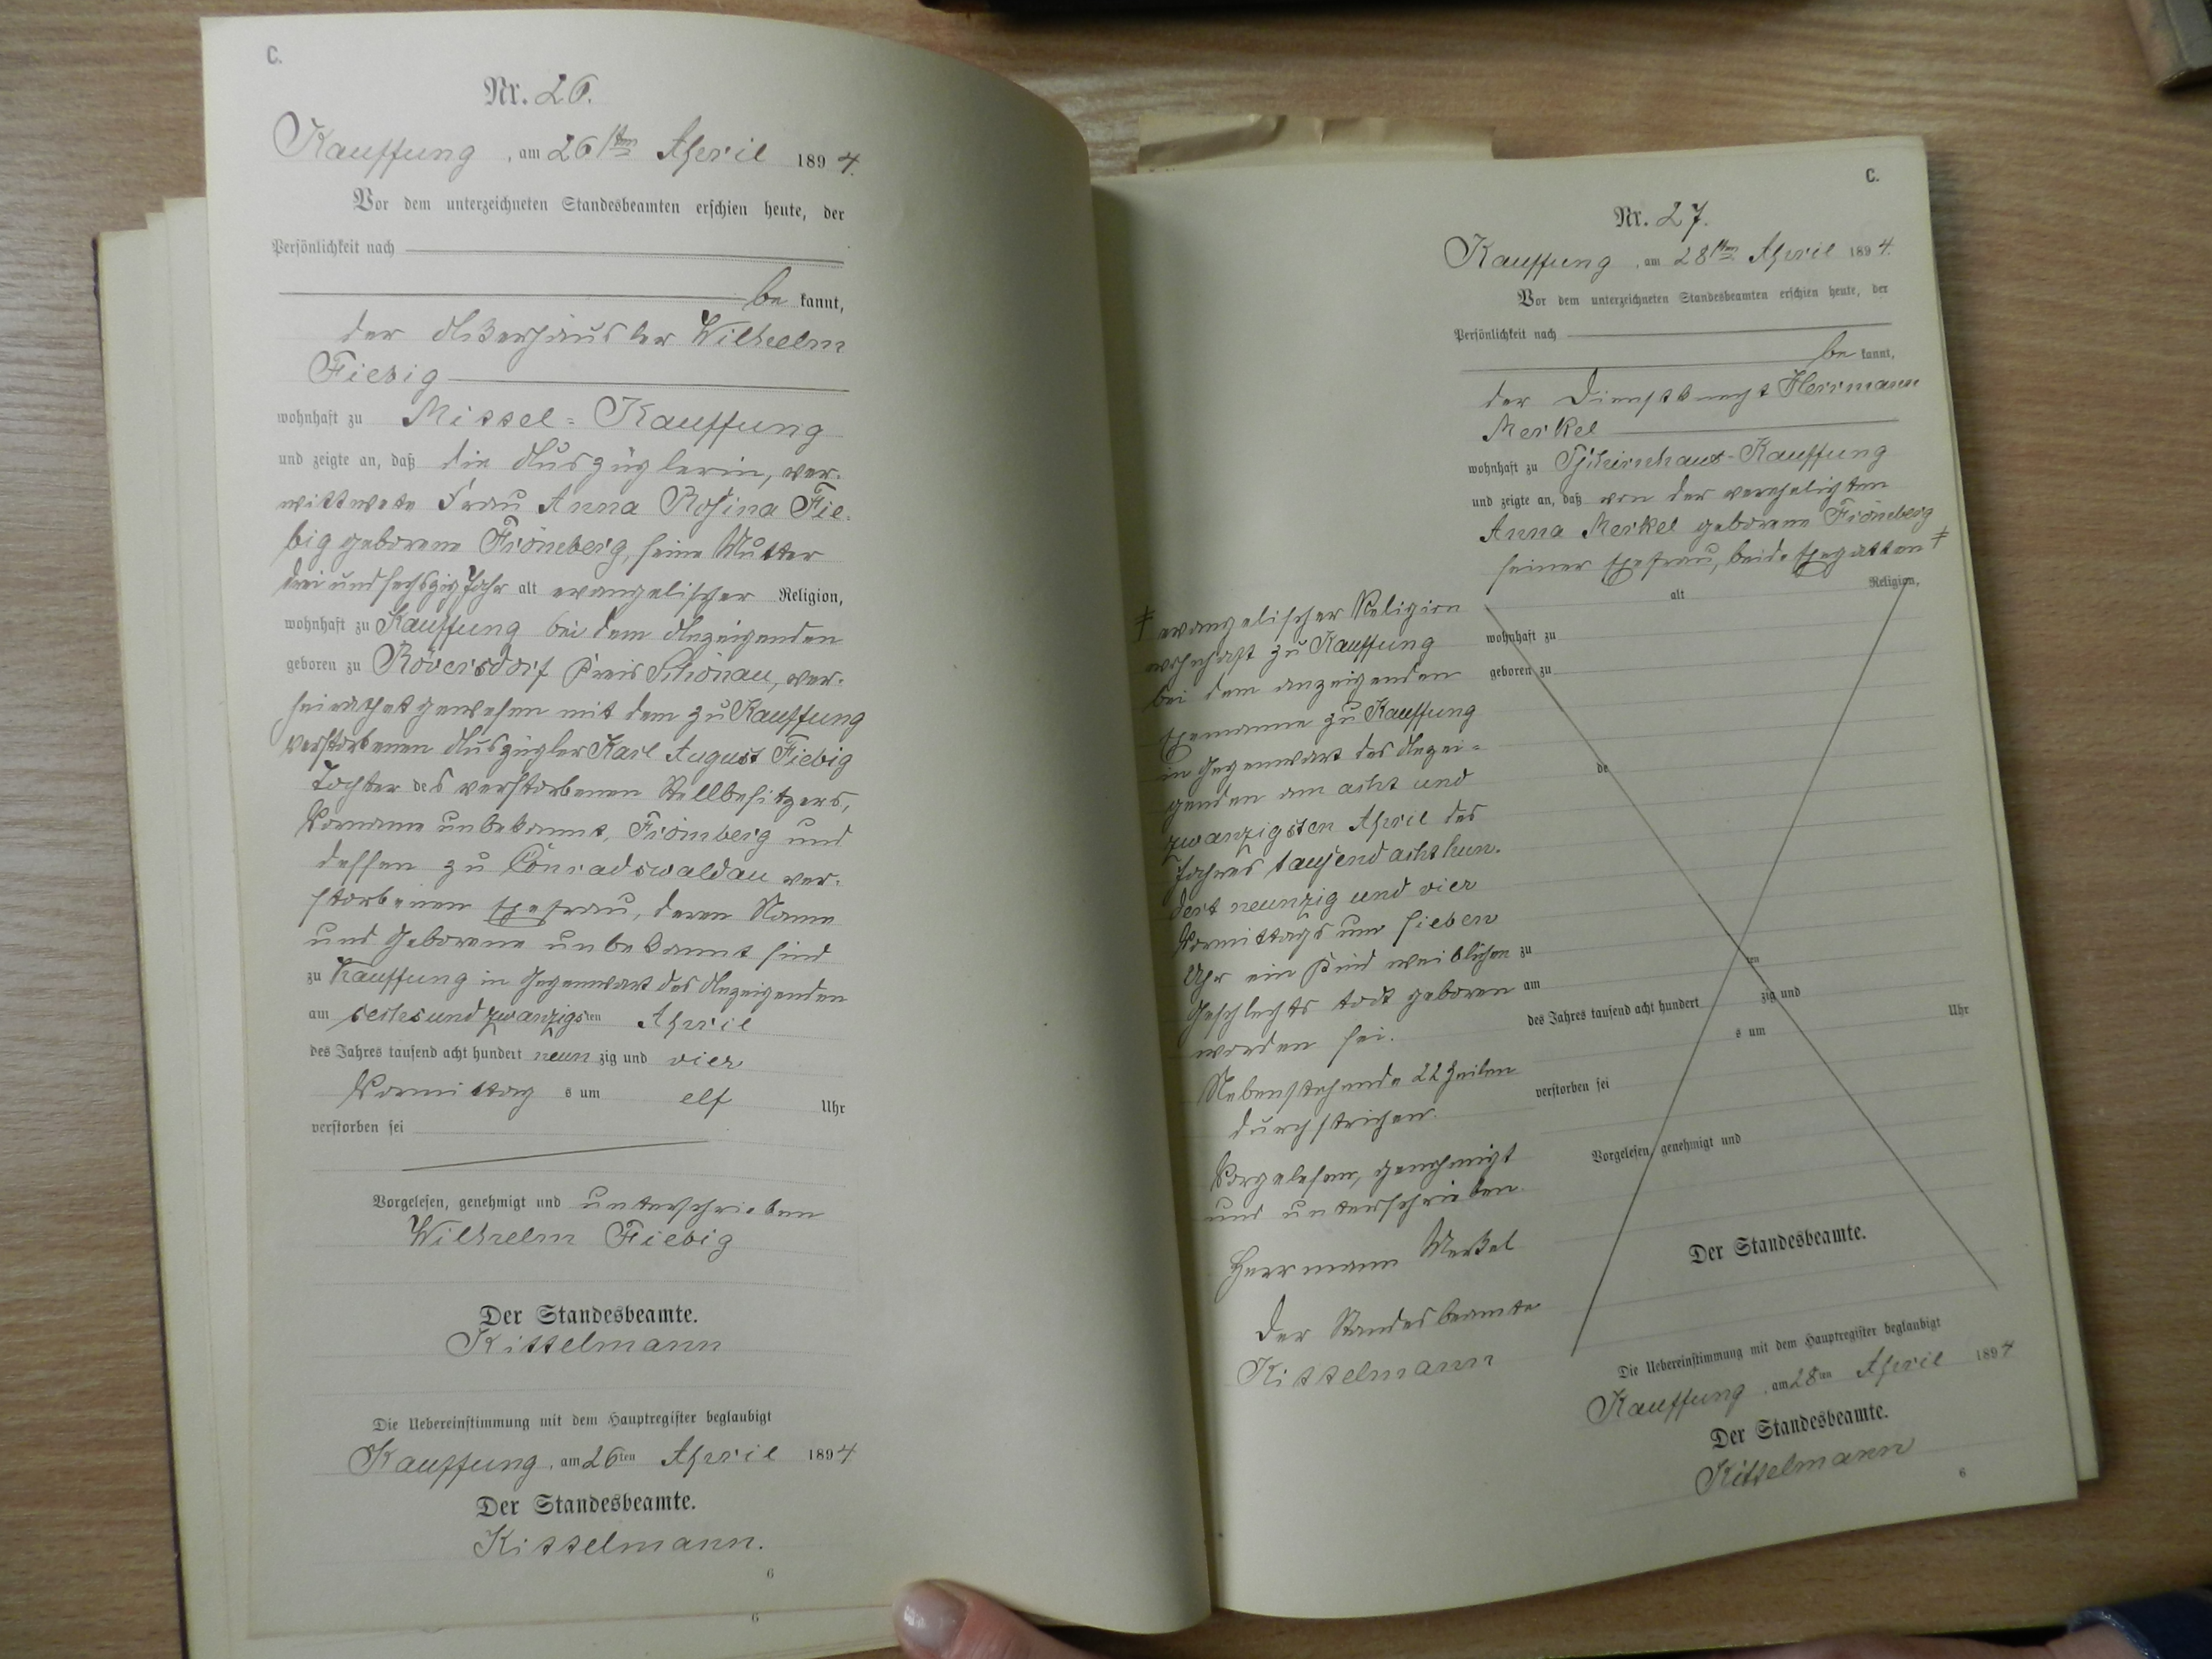 C.
Nr. 26.
Kauffung, am 26ten April 1894.
Vor dem unterzeichneten Standesbeamten erschien heute, der
Persönlichkeit nach
be kannt,
der Wilhelm
Fiebig
wohnhaft zu Mittel-Kauffung
und zeigte an, daß die Auszüglerin, ver-
wittwete Frau Anna Rosina Fie-
big geborene Frömberg, seine Mutter
drei und sechszig Jahr alt evangelischer Religion,
wohnhaft zu Kauffung bei dem Anzeigenden
geboren zu Röversdorf Kreis Schönau, ver-
heirathet gewesen mit dem zu Kauffung
verstorbenen Auszügler Karl August Fiebig
Tochter des verstorbenen Stellbesitzers,
Vorname unbekannt, Frömberg und
dessen zu Conradswaldau ver-
storbenen Ehefrau, deren Name
und Geborene unbekannt sind
zu Kauffung in Gegenwart des Anzeigenden
am sechs und zwanzigsten April
des Jahres tausend acht hundert neun zig und vier
Vormittag s um elf Uhr
verstorben sei
Vorgelesen, genehmigt und unterschrieben
Wilhelm Fiebig
Der Standesbeamte.
Kittelmann
Die Uebereinstimmung mit dem Hauptregister beglaubigt
Kauffung, am 26ten April 1894
Der Standesbeamte.
Kittelmann.
6
6
C.
Nr. 27.
Kauffung, am 28ten April 1894.
Vor dem unterzeichneten Standesbeamten erschien heute, der
Persönlichkeit nach
be kannt,
der Dienstknecht Herrmann
Merkel
wohnhaft zu Tschirnhaus-Kauffung
und zeigte an, daß von der verehelichten
Anna Merkel geborene Frömberg
seiner Ehefrau, beide Ehegatten ǂ
alt Religion,
wohnhaft zu
geboren zu
de
zu
am ten
des Jahres tausend acht hundert zig und
s um Uhr
verstorben sei
Vorgelesen, genehmigt und
Der Standesbeamte.
ǂ evangelischer Religion
wohnhaft zu Kauffung
bei dem anzeigenden
Ehemanne zu Kauffung
in Gegenwart des Anzei-
genden am acht und
zwanzigsten April des
Jahres tausend achthun-
dert neunzig und vier
Vormittags um sieben
Uhr ein Kind weiblichen
Geschlechts todt geboren
worden sei.
Nebenstehende 22 Zeilen
durchstrichen.
Vorgelesen, genehmigt
und unterschrieben.
Herrmann Merkel
Der Standesbeamte
Kittelmann
Die Uebereinstimmung mit dem Hauptregister beglaubigt
Kauffung, am 28ten April 1894
Der Standesbeamte.
Kittelmann
6